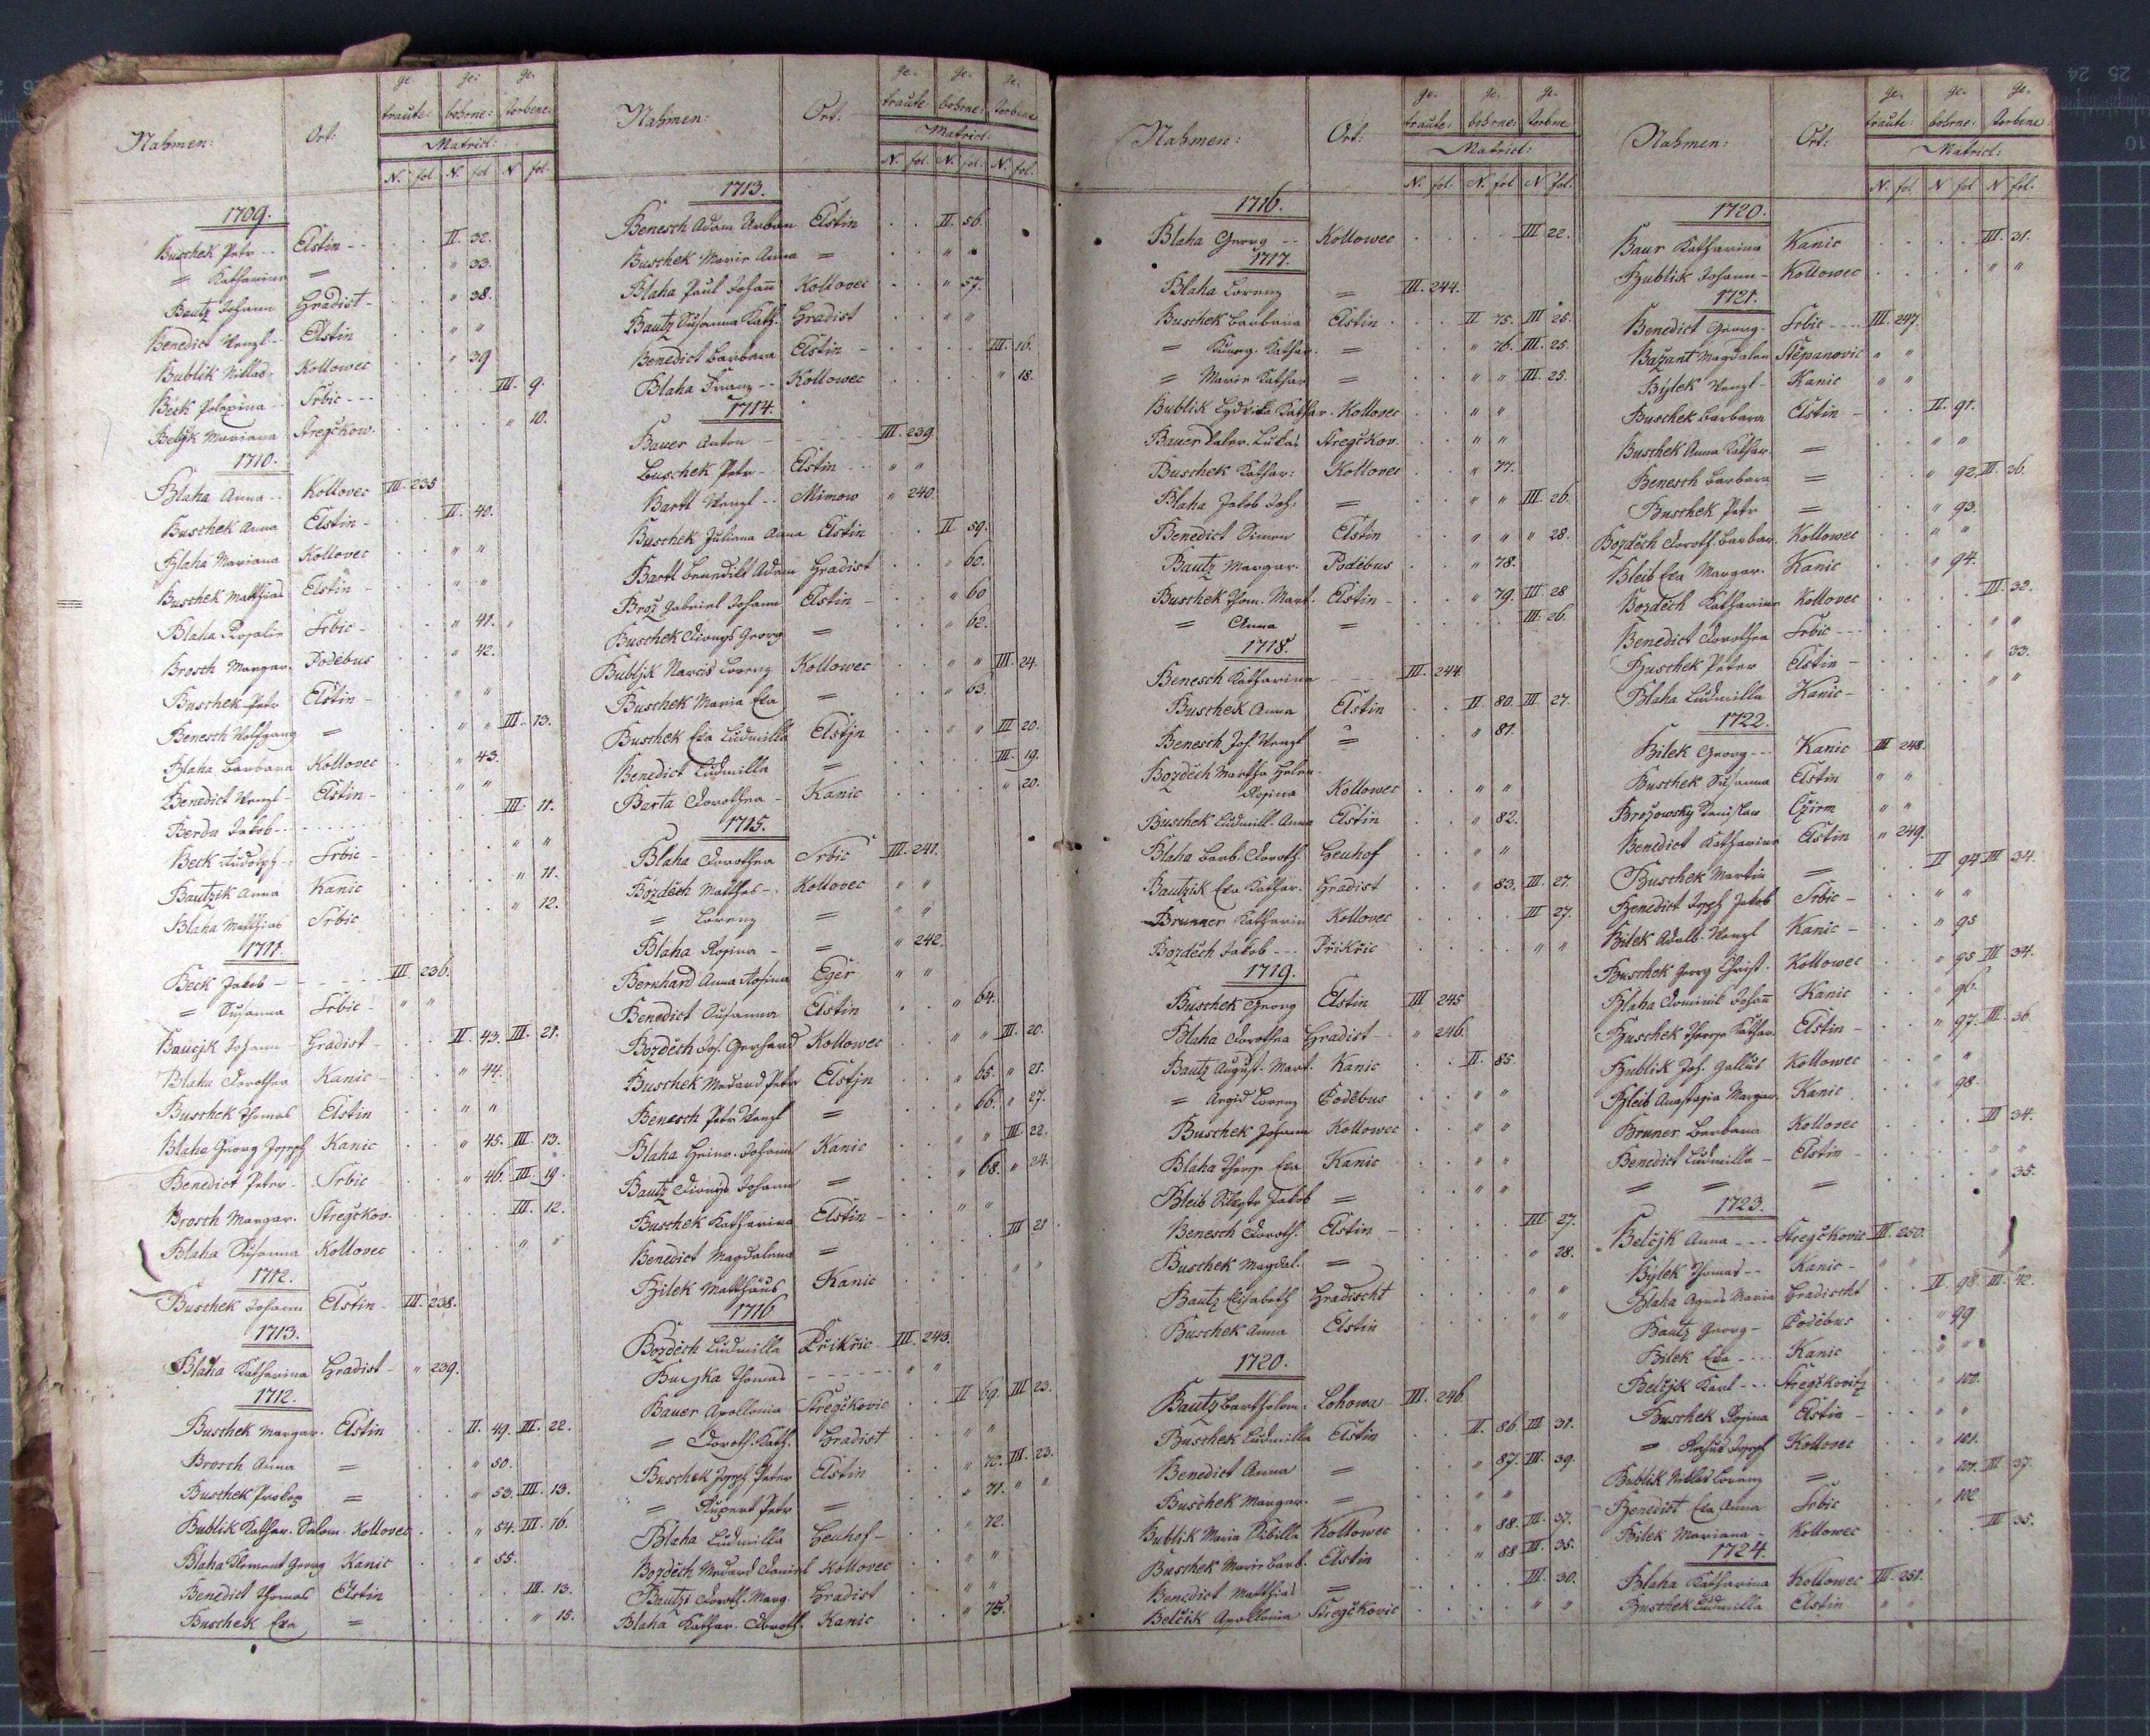 Nahmen: Ort: ge- traute: ge- bohrne: ge- storbene:
Matricl:
N. fol N. fol N fol.
1709.
Buschek Petr -- Elstin -- II. 32.
= Katharina = " 33.
Bautz Johann Hradist - " 38.
Benedict Wenzl -- Elstin " "
Bublik Niklas Kollowec " 39
Beck Polexina -- Srbic --- III. 9.
Belčjk Mariana Stregčkow. " 10.
1710.
Blaha Anna -- Kollovec III. 235
Buschek Anna Elstin - II. 40.
Blaha Mariana Kollovec " "
Buschek Matthias Elstin - " "
Blaha Rosalia Srbic - " 41. "
Brosch Margar. Poděbus " 42.
Buschek Petr Elstin - " "
Benesch Wolfgang = " " III. 13.
Blaha Barbara Kollovec " 43.
Benedict Wenzl - Elstin - " "
Berda Jakob -- III. 11.
Beck Rudolph - Srbic - " "
Bautzik Anna Kanic " 11.
Blaha Matthias Srbic " 12.
1711.
Beck Jakob - III. 236.
= Susanna Srbic - " "
Baucjk Johann - Hradist - II. 43. III. 21.
Blaha Dorothea Kanic - " 44.
Buschek Thomas Elstin " "
Blaha Georg Joseph Kanic " 45. III. 13.
Benedict Peter - Srbic " 46. III. 19.
Brosch Margar. Stregčkov. III. 12.
Blaha Susanna Kollovec " "
1712.
Buschek Johann Elstin - III. 238.
1713.
Blaha Katharina Hradist - " 239.
1712.
Buschek Margar. Elstin II. 49. III. 22.
Brosch Anna = " 50.
Buschek Prokop = " 53. III. 13.
Bublik Kathar. Salom. Kollovec " 54. III. 16.
Blaha Klement Georg Kanic " 55.
Benedict Thomas Elstin III. 13.
Buschek Eva = " 15.
Nahmen: Ort: ge- traute: ge- bohrne: ge- storbene
Matricl:
N. fol. N. fol. N. fol.
1713.
Benesch Adam Urban Elstin II. 56.
Buschek Marie Anna = " "
Blaha Paul Johann Kollovec " 57.
Bautz Susanna Kath. Hradist " "
Benedict Barbara Elstin III. 16.
Blaha Franz -- Kollowec " 18.
1714.
Bauer Anton - III. 239
Buschek Petr - Elstin -- " "
Bartl Wenzl -- Mimow " 240.
Buschek Juliana Anna Elstin II 59.
Bartl Benedikt Adam Hradist " 60.
Brož Gabriel Johann Elstin - " 60
Buschek Dionys Georg = " 62.
Bubljk Narcis Lorenz Kollowec " " III. 24.
Buschek Maria Eva = " 63.
Buschek Eva Ludmilla Elstjn " " III 20.
Benedict Ludmilla = III. 19.
Barta Dorothea - Kanic " 20.
1715.
Blaha Dorothea Srbic III. 241.
Bozděch Matthes - Kollovec " "
= Lorenz = " "
Blaha Rosina - = " 242.
Bernhard Anna Rosina Eger " "
Benedict Susanna Elstin " 64.
Bozděch Jos. Gerhard Kollowec " " III. 20.
Buschek Medard Petr Elstjn " 65. " 21.
Benesch Petr Wenzl = " 66. " 27.
Blaha Heinr. Johann Kanic " " III 22.
Bautz Dionys Johann = " 68. " 24.
Buschek Katharina Elstin - " "
Benedict Magdalena = III 21.
Bilek Matthäus Kanic " "
1716
Bozděch Ludmilla Přikřic III. 243.
Thomas " "
Bauer Apollonia Stregčkovic II 69. III 23.
= Doroth. Kath. Hradist " "
Buschek Joseph Peter Elstin " 70. III. 23.
= Rupert Petr = " 71. " "
Blaha Ludmilla Heuhof - " 72.
Bozděch Medard Daniel Kollovec " "
Bautz Doroth. Marg. Hradist " "
Blaha Kathar. Doroth. Kanic " 75.
Nahmen: Ort: ge- traute: ge- bohrne: ge- storbne
Matricl:
N. fol. N. fol N fol.
1716.
Blaha Georg -- Kollowec III 22.
1717.
Blaha Lorenz = III. 244.
Buschek Barbara Elstin II 75. III 25.
= Kuneg. Kathar. = " 76. III. 25.
= Marie Kathar. = " " III. 25.
Bublik Kathar. Kollovec " "
Bauer Lukas Stregčkov. " "
Buschek Kathar: Kollovec " 77.
Blaha Jakob Joh: = " " III. 26.
Benedict Simon Elstin " " " 28.
Bautz Margar. Poděbus " 78.
Buschek Thom. Mart. Elstin - " 79. III 28
= Anna = III. 26.
1718.
Benesch Katharina --- III. 244.
Buschek Anna Elstin II. 80. III 27.
Benesch Jos. Wenzl = " 81.
Bozděch Martha Helen.
Rosina Kollowec " "
Buschek Ludmill. Anna Elstin " 82.
Blaha Barb. Doroth. Heuhof " "
Bautzik Eva Kathar. Hradist " 83. III. 27.
Brunner Katharin Kollovec III 27.
Bozděch Jakob --- Přikřic " "
1719.
Buschek Georg Elstin III 245
Blaha Dorothea Hradist - " 246.
Bautz August. Mart. Kanic II. 85.
= Aegid Lorenz Poděbus " "
Buschek Johann Kollowec " "
Blaha Theres Eva Kanic " "
Bleib Jakob = " "
Benesch Doroth. Elstin - III 27.
Buschek Magdal. = " 28.
Bautz Elisabeth Hradischt " "
Buschek Anna Elstin " "
1720.
Bautz Bartholom: Lohowa - III. 246.
Buschek Ludmilla Elstin II. 86. III 31.
Benedict Anna = " 87. III. 39.
Buschek Margar. = " "
Bublik Maria Sibilla Kollowec " 88. III. 37.
Buschek Marie Barb. Elstin " 88 III. 35.
Benedict Matthias = III. 30.
Belčik Apollonia Stregčkovic " "
Nahmen: Ort: ge- traute: ge- bohrne: ge- storbene:
Matricl:
N. fol. N fol N fol.
1720.
Baur Katharina Kanic III. 31.
Bublik Johann - Kollowec " "
1721.
Benedict Georg - Srbic --- III. 247.
Bažant Magdalen Stěpanovic " "
Býlek Wenzl - Kanic " "
Buschek Barbara Elstin - II. 91.
Buschek Anna Kathar. = " "
Benesch Barbara = " 92. III. 36.
Buschek Petr = " 93.
Bozděch Doroth. Barbar. Kollowec " "
Bleib Eva Margar. Kanic " 94.
Bozděch Katharina Kollovec III. 32.
Benedict Dorothea Srbic --- " "
Buschek Peter Elstin - " 33.
Blaha Ludmilla Kanic - " "
1722.
Bilek Georg --- Kanic III 248.
Buschek Susanna Elstin " "
Brožowsky " "
Benedict Katharina Elstin " 249.
Buschek Martin = II 94 III 34.
Benedict Joseph Jakob Srbic - " "
Bilek Adalb. Wenzl Kanic - " 95
Buschek Georg Christ. Kollowec " 95 III 34.
Blaha Dominik Johann Kanic " 96.
Buschek Theres Kathar. Elstin - " 97. III. 36.
Bublik Jos. Gallus Kollowec " "
Bleib Anastasia Margar. Kanic " 98.
Bruner Barbara Kollovec III 34.
Benedict Ludmilla - Elstin - " "
= = = " 35.
1723.
Belčjk Anna --- Stregčkovic III. 250.
Býlek Thomas -- Kanic - " "
Blaha Agnes Maria Hradischt II. 98. III. 42.
Bautz Georg - Poděbus " 99
Bilek Eva ---- Kanic " "
Belčjk Karl --- Stregčkovitz " 100.
Buschek Rosina Elstin - " "
= Joseph Kollovec " 101.
Bublik Niklas Lorenz = " 101. III 37.
Benedict Eva Anna Srbic " 102
Bilek Mariana - Kollowec III 35.
1724.
Blaha Katharina Kollowec III. 251.
Buschek Ludmilla Elstin " "